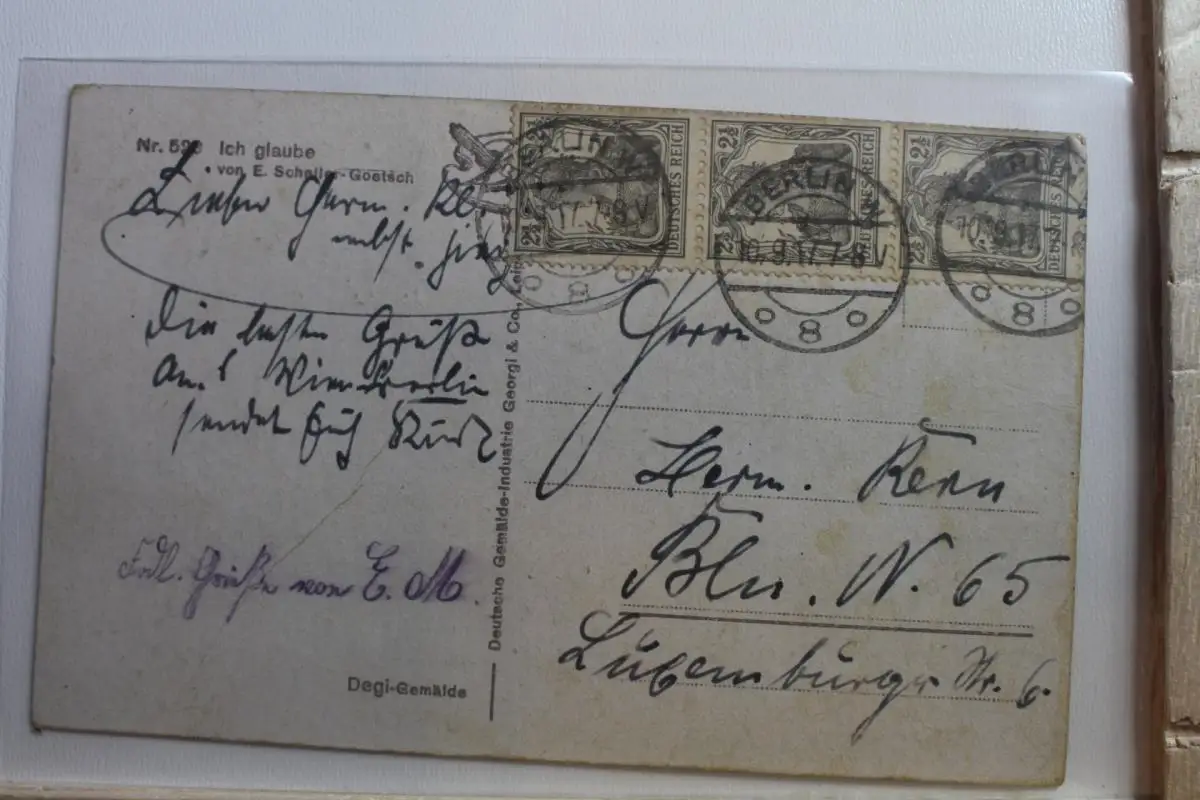 Ich glaube
von E. Scholler-Goetsch
Lieber Herm.
nebst
Die besten Grüße
aus
sendet Euch Kurt
Frdl. Grüße von E. M.
Degi-Gemälde
Deutsche Gemälde-Industrie Georgi & Co.,
2½ DEUTSCHES REICH 2½
2½ DEUTSCHES REICH 2½
2½ DEUTSCHES REICH 2½
BERLIN N
10.9.17.7-8V
8
Herrn
Herm. Kern
Bln. N. 65
Luxemburger Str. 6.